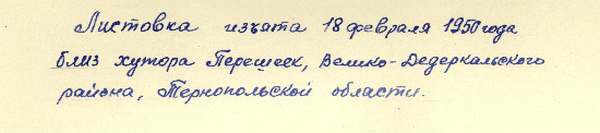 Листовка изъята 18 февраля 1950 года
близ хутора Перешеек, Велико-Дедеркальского
района, Тернопольской области.